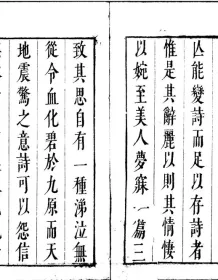 亾能變詩而足以存詩者
惟是其辭麗以則其情悽
以婉至美人夢寐一篇三
致其思自有一種涕泣無
從令血化碧於九原而天
地震驚之意詩可以怨信